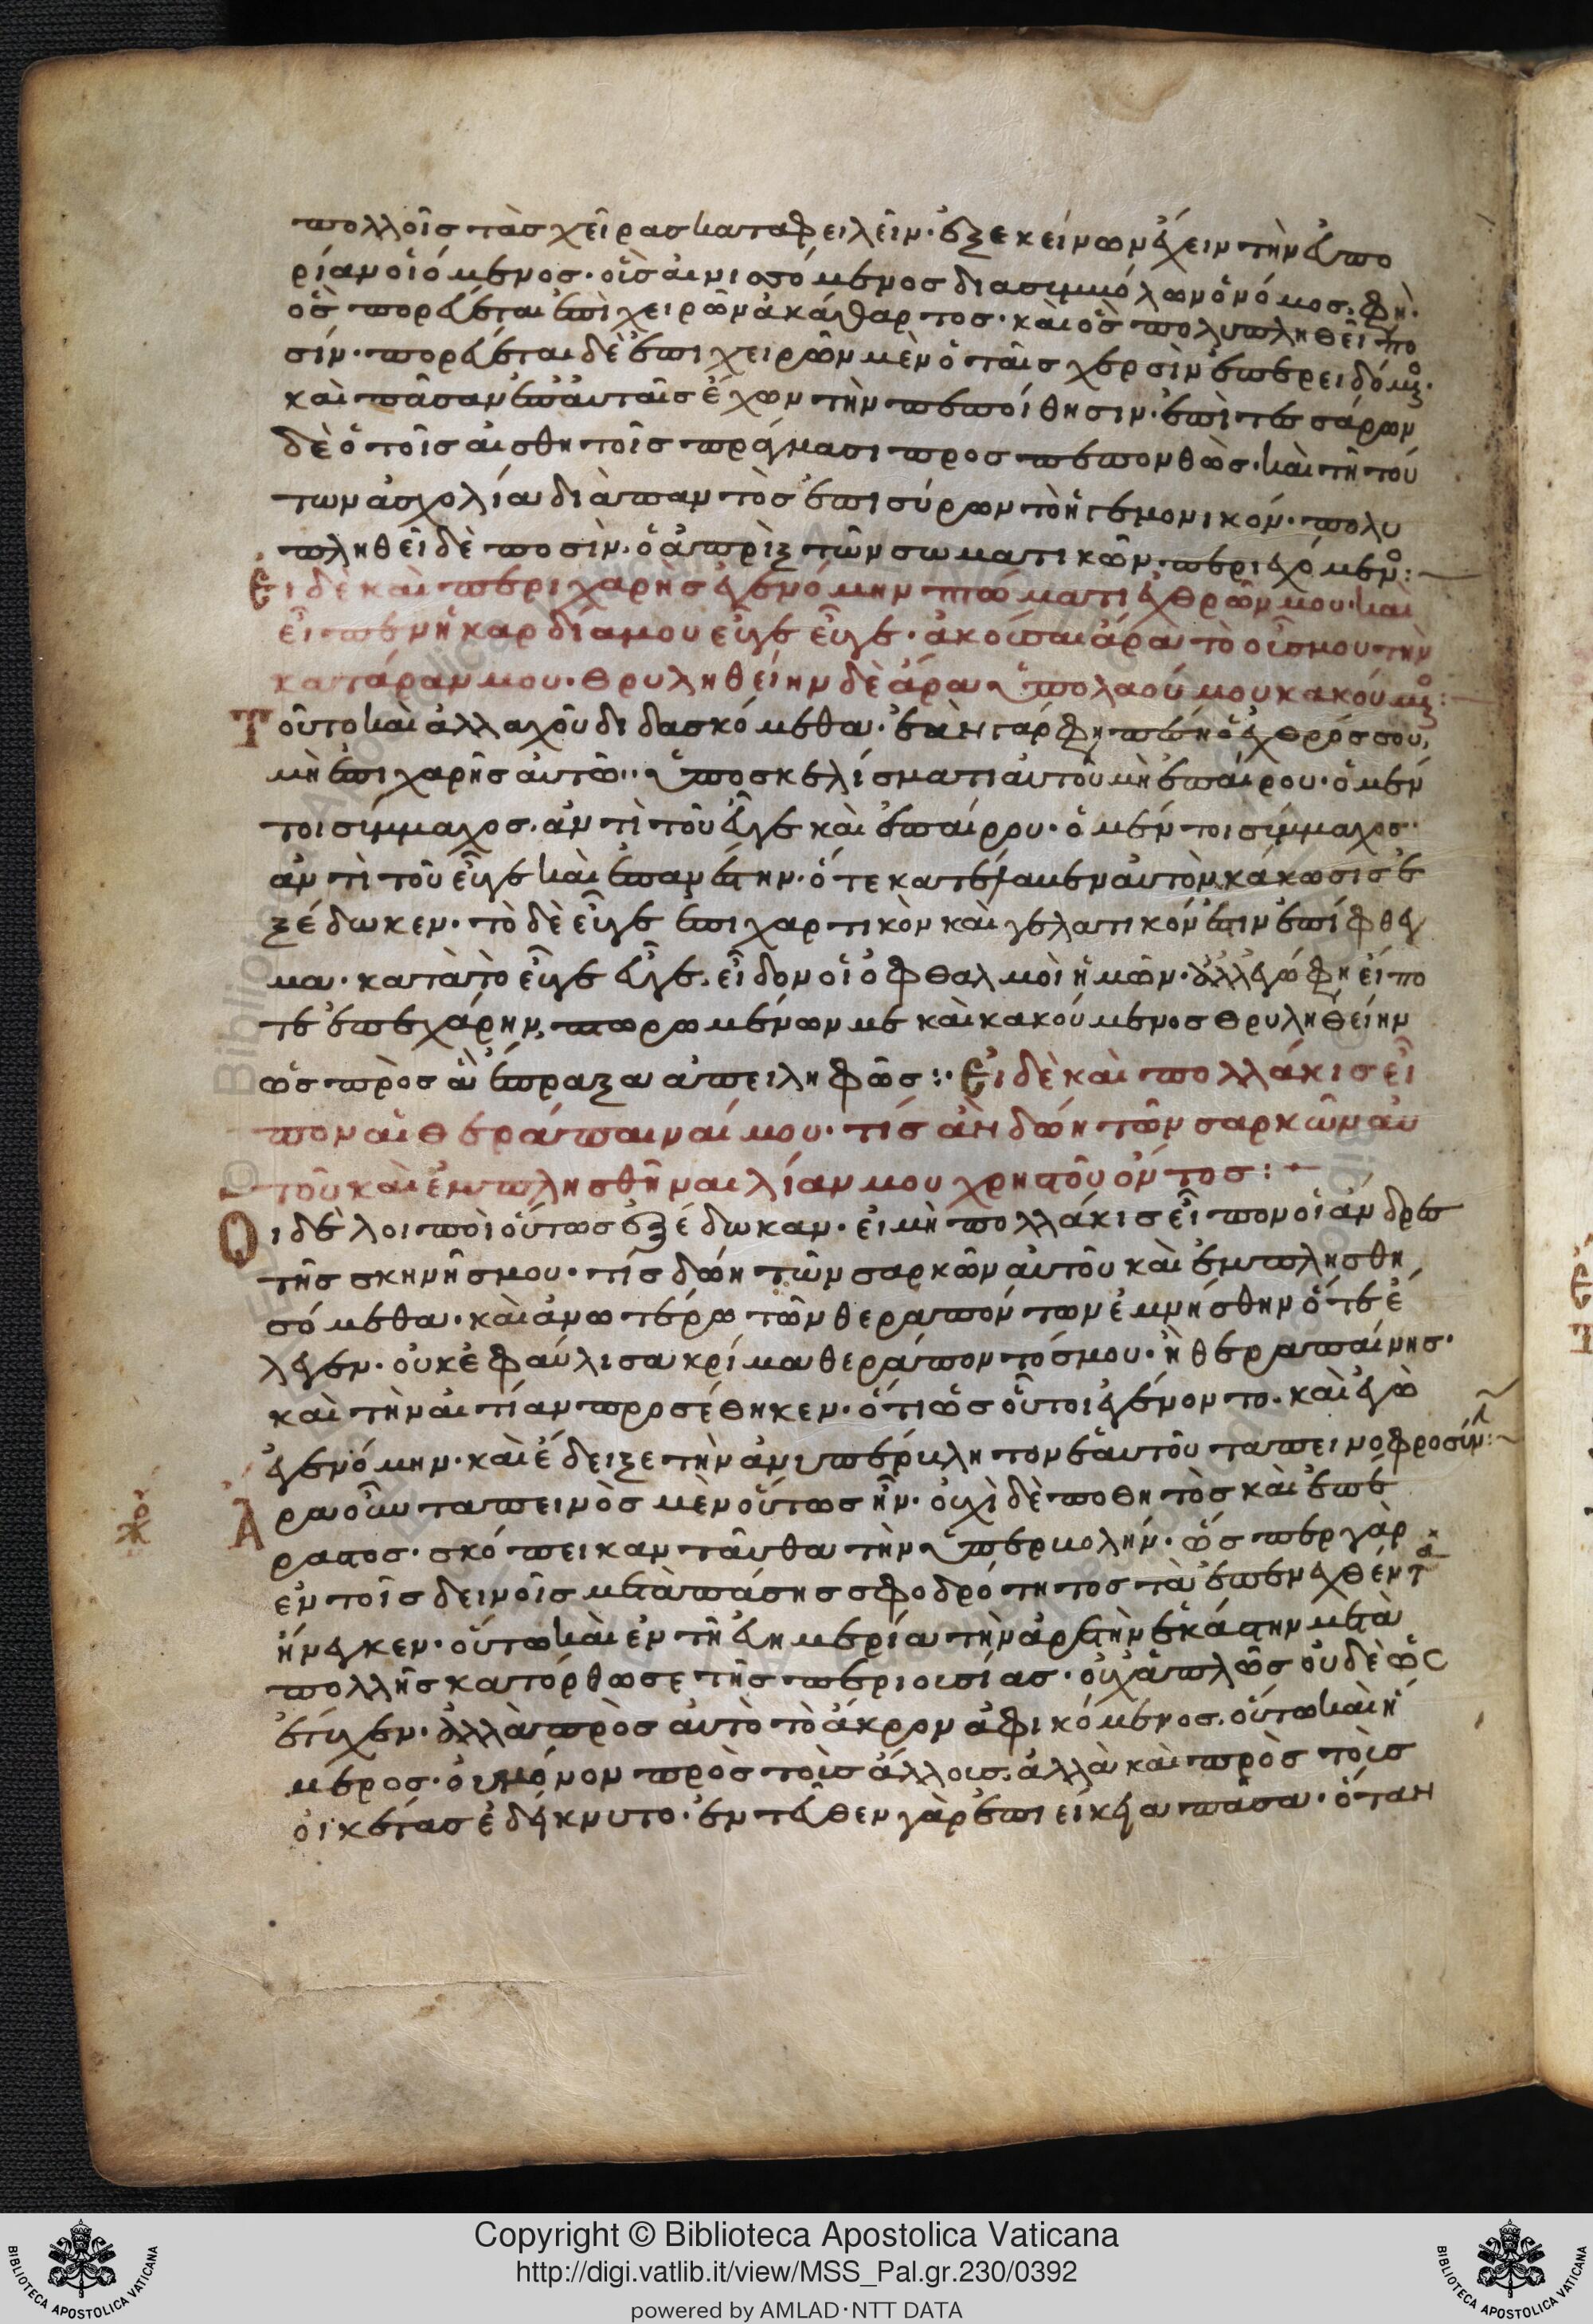 πολλοῖσ τὰσ χεῖρασ καταφειλεῖν· ἐξ ἐκείνων ἔχειν τὴν εὐπο
ρίαν οἰόμενοσ· οἷσ αἰνισσόμενοσ διασυμβόλων ὁ νόμοσ· φησὶ·
ὃσ πορεύεται ἐπὶ χειρῶν ἀκάθαρτοσ· καὶ ὃσ πολυπληθεῖ πο
σίν· πορεύεται δὲ ἐπι χειρῶν μὲν ὁ ταῖσ χερσὶν ἐπερειδόμενος·
καὶ πᾶσαν ἐπ αὐταῖσ ἔχων τὴν πεποίθησιν· ἐπὶ τεσσάρων
δὲ ὁ τοῖσ αἰσθητοῖσ πράγμασι προσπεπονθὼσ· καὶ τῆ τού
των ἀσχολία διὰ παντὸσ ἐπισύρων τὸ ἡγεμονικόν· πολυ
πληθεῖ δὲ ποσὶν· ὁ ἀπρὶξ τῶν σωματικῶν περιεχόμενος:
Ει δὲ καὶ περιχαρὴσ ἐγενόμην πτώματι ἐχθρῶν μου· καὶ
εἶπεν ἡ καρδία μου εὖγε εὖγε· ἀκούσαι ἄρα τὸ οὖσ μου τὴν
κατάραν μου· θρυληθείην δὲ ἄρα ὑπὸ λαού μου κακούμενος:
Τοῦτο καὶ ἀλλαχοῦ διδασκόμεθα· ἐὰν γάρ φησι πέση ὁ ἐχθρόσ σου,
μὴ ἐπιχαρῆσ αὐτῶ· ὑποσκελίσματι αὐτοῦ μὴ ἐπαίρου· ὁ μέν
τοι σύμμαχοσ· ἀντὶ τοῦ εὖγε καὶ ἐπαίρου· ὁ μέν τοι σύμμαχοσ·
ἀντὶ τοῦ εὖγε καὶ ἐπανέστην· ὅτε κατέλαβεν αὐτὸν κάκωσισ ἐ
ξέδωκεν· τὸ δὲ εὖγε ἐπιχαρτικὸν καὶ γελαστικόν ἐστιν ἐπίφθεγ
μα· κατὰ τὸ εὖγε εὖγε· εἶδον οἱ ὀφθαλμοὶ ἡμῶν· ἀλλ ἐγώ φησι εἴ πο
τε ἐπεχάρην, πτωρωμένων με καὶ κακούμενοσ θρυληθείην
ὡσ πρὸσ ἃ ἔπραξα ἀπειληφώσ: Εἰ δὲ καὶ πολλάκισ εἶ
πον αἱ θεράπαιναί μου· τίσ ἂν δώη τῶν σαρκῶν αὐ
τοῦ καὶ ἐμπλησθῆναι λίαν μου χρηστοῦ ὄντοσ:
Οἱ δὲ λοιποὶ οὕτωσ ἐξέδωκαν· εἰ μὴ πολλάκισ εἶπον οἱ ἄνδρεσ
τῆσ σκηνῆσ μου· τίσ δώη τῶν σαρκῶν αὐτοῦ καὶ ἐμπλησθη
σόμεθα· καὶ ἀνωτέρω τῶν θεραπόντων ἐμνήσθην ὅτε ἔ
λεγεν· οὐκ ἐφαύλισα κρίμα θεράποντόσ μου· ἢ θεραπαίνησ·
καὶ τὴν αἰτίαν προσέθηκεν· ὅτι ὡσ οὗτοι ἐγένοντο· καὶ ἐγὼ
ἐγενόμην· καὶ ἔδειξε τὴν ἀνυπέρβλητον ἑαυτοῦ ταπεινοφροσύνην:
Ἆρα οὖν ταπεινὸσ μὲν οὕτωσ ἦν· οὐχὶ δὲ ποθητὸσ καὶ ἐπέ
ραστοσ· σκόπει κἀνταῦθα τὴν ὑπερβολήν· ὥσπερ γὰρ
ἐν τοῖσ δεινοῖσ μετὰ πάσησ σφοδρότητοσ τὰ ἐπενεχθέντα
ἤνεγκεν· οὕτω καὶ ἐν τῆ εὐημερία τὴν ἀρετὴν ἑκάστην μετὰ
πολλῆσ κατόρθωσε τῆσ περιουσίασ· οὐχ ἁπλῶσ οὐδὲ ὡσ
ἔτυχεν· ἀλλὰ πρὸσ αὐτὸ τὸ ἄκρον ἀφικόμενοσ· οὕτω καὶ ἥ
μεροσ· οὐ μόνον πρὸσ τοὺσ ἄλλουσ· ἀλλὰ καὶ πρὸσ τοὺσ
οἰκέτασ ἐδείκνυτο· ἐντεῦθεν γὰρ ἐπιείκεια πᾶσα· ὅταν
Copyright © Biblioteca Apostolica Vaticana
http://digi.vatlib.it/view/MSS_Pal.gr.230/0392
powered by AMLAD·NTT DATA
BIBLIOTECA APOSTOLICA VATICANA
BIBLIOTECA APOSTOLICA VATICANA